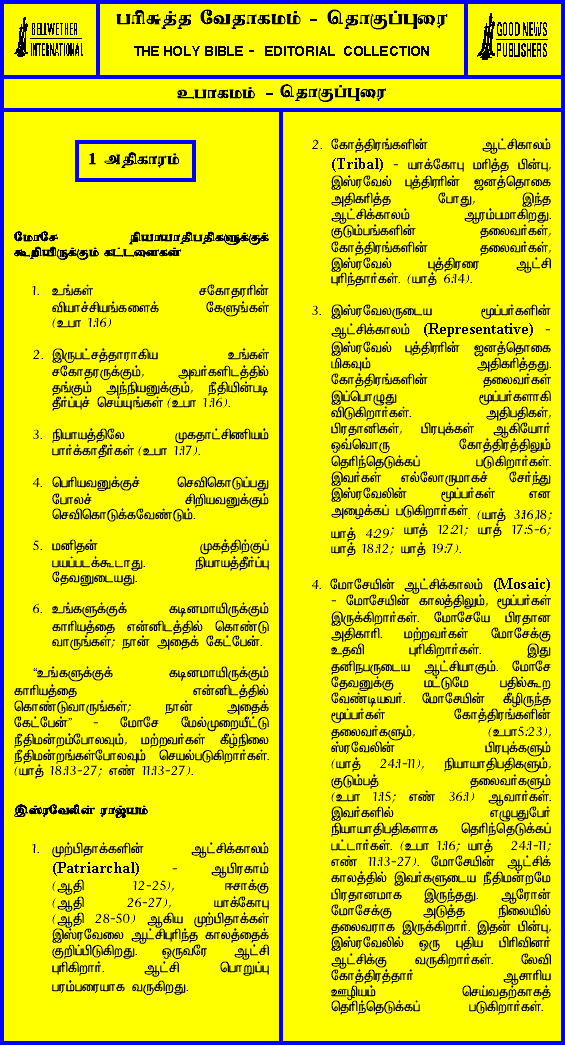 BELLWETHER
INTERNATIONAL
பரிசுத்த வேதாகமம் - தொகுப்புரை
THE HOLY BIBLE - EDITORIAL COLLECTION
GOOD NEWS
PUBLISHERS
உபாகமம் - தொகுப்புரை
1 அதிகாரம்
மோசே நியாயாதிபதிகளுக்குக்
கூறியிருக்கும் கட்டளைகள்
1. உங்கள் சகோதரரின்
வியாச்சியங்களைக் கேளுங்கள்
(உபா 1:16)
2. இருபட்சத்தாராகிய உங்கள்
சகோதரருக்கும், அவர்களிடத்தில்
தங்கும் அந்நியனுக்கும், நீதியின்படி
தீர்ப்புச் செய்யுங்கள் (உபா 1:16).
3. நியாயத்திலே முகதாட்சிணியம்
பார்க்காதீர்கள் (உபா 1:17).
4. பெரியவனுக்குச் செவிகொடுப்பது
போலச் சிறியவனுக்கும்
செவிகொடுக்கவேண்டும்.
5. மனிதன் முகத்திற்குப்
பயப்படக்கூடாது. நியாயத்தீர்ப்பு
தேவனுடையது.
6. உங்களுக்குக் கடினமாயிருக்கும்
காரியத்தை என்னிடத்தில் கொண்டு
வாருங்கள்; நான் அதைக் கேட்பேன்.
"உங்களுக்குக் கடினமாயிருக்கும்
காரியத்தை என்னிடத்தில்
கொண்டுவாருங்கள்; நான் அதைக்
கேட்பேன்" - மோசே மேல்முறையீட்டு
நீதிமன்றம்போலவும், மற்றவர்கள் கீழ்நிலை
நீதிமன்றங்கள்போலவும் செயல்படுகிறார்கள்.
(யாத் 18:13-27; எண் 11:13-27).
இஸ்ரவேலின் ராஜ்யம்
1. முற்பிதாக்களின் ஆட்சிக்காலம்
(Patriarchal) - ஆபிரகாம்
(ஆதி 12-25), ஈசாக்கு
(ஆதி 26-27), யாக்கோபு
(ஆதி 28-50) ஆகிய முற்பிதாக்கள்
இஸ்ரவேலை ஆட்சிபுரிந்த காலத்தைக்
குறிப்பிடுகிறது. ஒருவரே ஆட்சி
புரிகிறார். ஆட்சி பொறுப்பு
பரம்பரையாக வருகிறது.
2. கோத்திரங்களின் ஆட்சிகாலம்
(Tribal) - யாக்கோபு மரித்த பின்பு,
இஸ்ரவேல் புத்திரரின் ஜனத்தொகை
அதிகரித்த போது, இந்த
ஆட்சிக்காலம் ஆரம்பமாகிறது.
குடும்பங்களின் தலைவர்கள்,
கோத்திரங்களின் தலைவர்கள்,
இஸ்ரவேல் புத்திரரை ஆட்சி
புரிந்தார்கள். (யாத் 6:14).
3. இஸ்ரவேலருடைய மூப்பர்களின்
ஆட்சிக்காலம் (Representative) -
இஸ்ரவேல் புத்திரரின் ஜனத்தொகை
மிகவும் அதிகரித்தது.
கோத்திரங்களின் தலைவர்கள்
இப்பொழுது மூப்பர்களாகி
விடுகிறார்கள். அதிபதிகள்,
பிரதானிகள், பிரபுக்கள் ஆகியோர்
ஒவ்வொரு கோத்திரத்திலும்
தெரிந்தெடுக்கப் படுகிறார்கள்.
இவர்கள் எல்லோருமாகச் சேர்ந்து
இஸ்ரவேலின் மூப்பர்கள் என
அழைக்கப் படுகிறார்கள். (யாத் 3:16,18;
யாத் 4:29; யாத் 12:21; யாத் 17:5-6;
யாத் 18:12; யாத் 19:7).
4. மோசேயின் ஆட்சிக்காலம் (Mosaic)
- மோசேயின் காலத்திலும், மூப்பர்கள்
இருக்கிறார்கள். மோசேயே பிரதான
அதிகாரி. மற்றவர்கள் மோசேக்கு
உதவி புரிகிறார்கள். இது
தனிநபருடைய ஆட்சியாகும். மோசே
தேவனுக்கு மட்டுமே பதில்கூற
வேண்டியவர். மோசேயின் கீழிருந்த
மூப்பர்கள் கோத்திரங்களின்
தலைவர்களும், (உபா5:23),
ஸ்ரவேலின் பிரபுக்களும்
(யாத் 24:1-11), நியாயாதிபதிகளும்,
குடும்பத் தலைவர்களும்
(உபா 1:15; எண் 36:1) ஆவார்கள்.
இவர்களில் எழுபதுபேர்
நியாயாதிபதிகளாக தெரிந்தெடுக்கப்
பட்டார்கள். (உபா 1:16; யாத் 24:1-11;
எண் 11:13-27). மோசேயின் ஆட்சிக்
காலத்தில் இவர்களுடைய நீதிமன்றமே
பிரதானமாக இருந்தது. ஆரோன்
மோசேக்கு அடுத்த நிலையில்
தலைவராக இருக்கிறார். இதன் பின்பு,
இஸ்ரவேலில் ஒரு புதிய பிரிவினர்
ஆட்சிக்கு வருகிறார்கள். லேவி
கோத்திரத்தார் ஆசாரிய
ஊழியம் செய்வதற்காகத்
தெரிந்தெடுக்கப் படுகிறார்கள்.